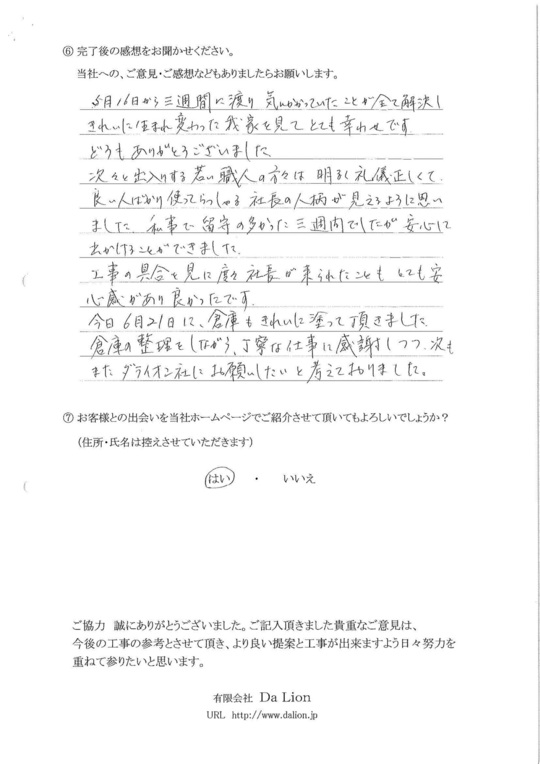 ⑥ 完了後の感想をお聞かせください。
当社への、ご意見・ご感想などもありましたらお願いします。
5月16日から三週間に渡り 気にかかっていたことが全て解決し
きれいに生まれ変わった我家を見て とても幸わせです
どうもありがとうございました
次々と出入りする若い職人の方々は 明るく礼儀正しくて、
良い人ばかり使ってらっしゃる 社長の人柄が見えるように思い
ました 私事で 留守の多かった三週間でしたが 安心して
出かけることができました。
工事の具合を見に度々 社長が来られたことも とても安
心感があり良かったです
今日6月21日に、倉庫もきれいに塗って頂きました
倉庫の整理をしながら、丁寧な仕事に感謝しつつ 次も
また ダライオン社にお願いしたいと考えておりました。
⑦ お客様との出会いを当社ホームページでご紹介させて頂いてもよろしいでしょうか?
(住所・氏名は控えさせていただきます)
はい ・ いいえ
ご協力 誠にありがとうございました。ご記入頂きました貴重なご意見は、
今後の工事の参考とさせて頂き、より良い提案と工事が出来ますよう日々努力を
重ねて参りたいと思います。
有限会社 Da Lion
URL http://www.dalion.jp